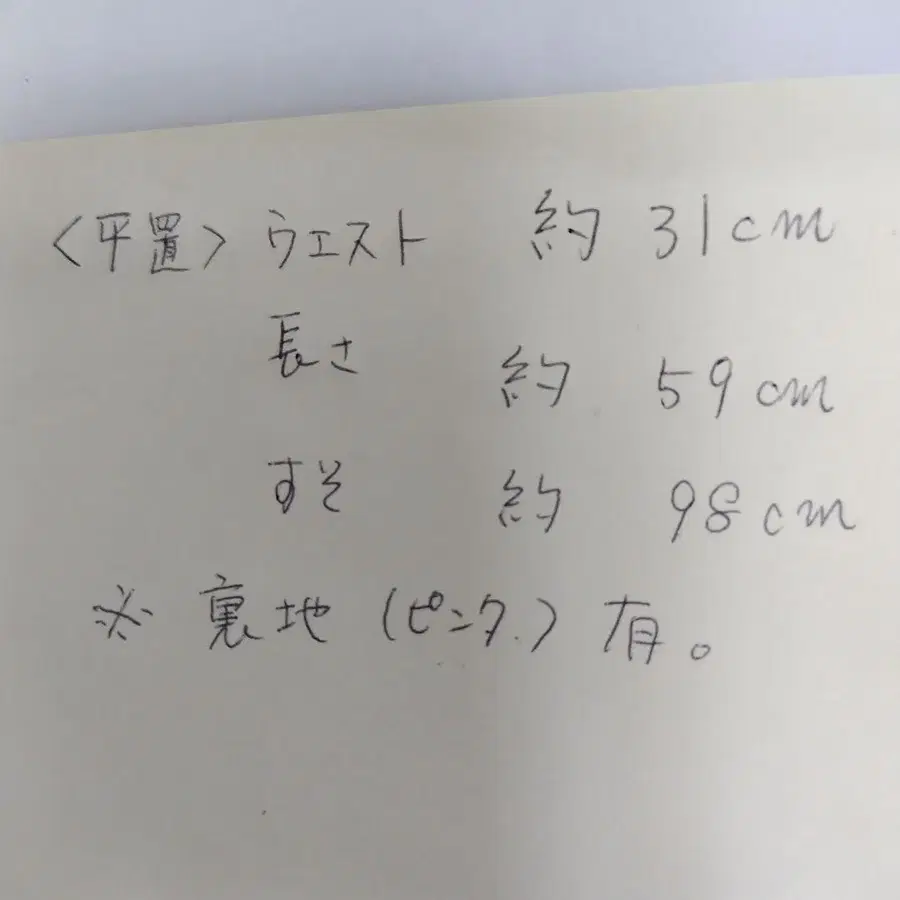 〈平置〉ウエスト 約 31cm
長さ 約 59cm
すそ 約 98cm
※ 裏地(ピンク)有。